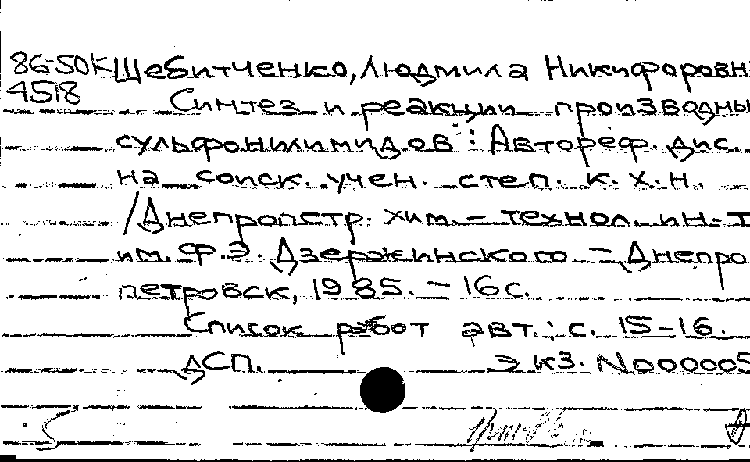 86-50К Шебитченко, Людмила Никифоровн
4518 Синтез и реакции производны
сульфонилимидов : Автореф. дис.
на соиск. учен. степ. к. х. н.
/Днепропетр. хим. - технол. ин-т
им. Ф.Э. Дзержинского. - Днепро
петровск, 1985. - 16 с.
Список работ авт.: с. 15-16.
ДСП. Экз. N000005